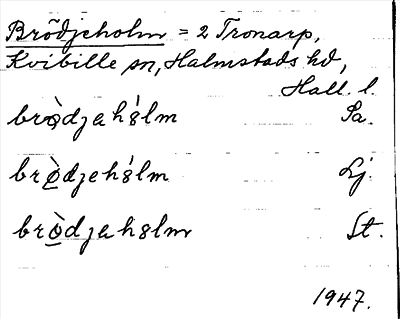 Brödjeholm = 2 Tronarp,
Kvibille sn, Halmstads hd,
Hall. l.
brø̀djahə́lm Sa.
brø̀djehə́lm Lj.
brø̀djahəlm St.
1947.